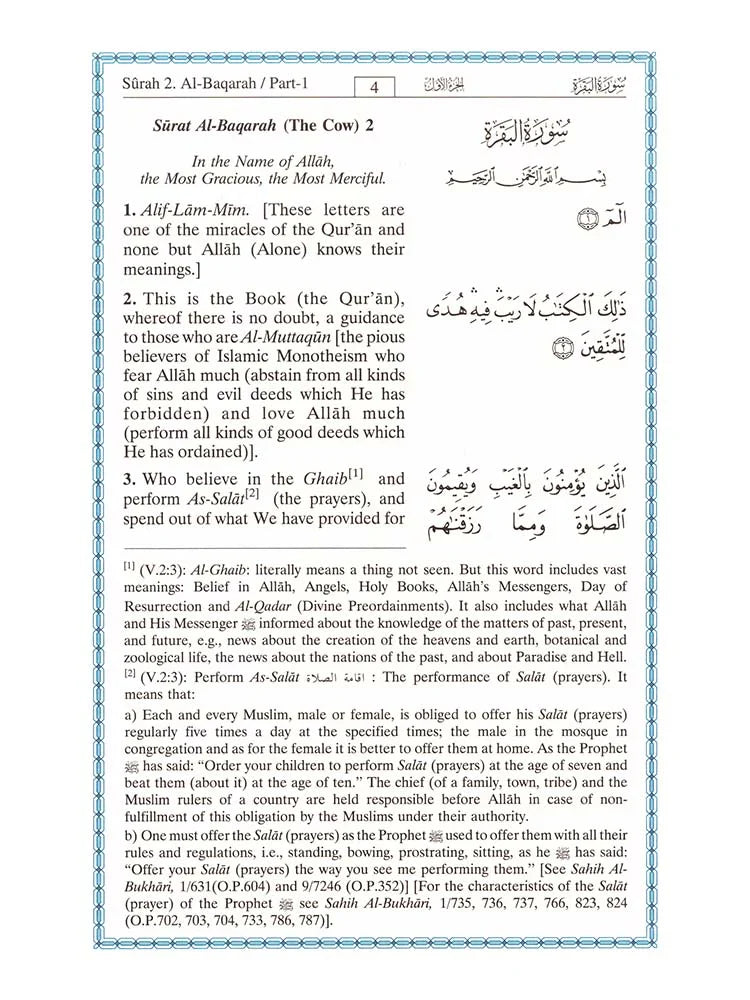 Sûrah 2. Al-Baqarah / Part-1
4
الجزء الأول
سورة البقرة
Sūrat Al-Baqarah (The Cow) 2
In the Name of Allāh,
the Most Gracious, the Most Merciful.
1. Alif-Lām-Mīm. [These letters are
one of the miracles of the Qur'ān and
none but Allāh (Alone) knows their
meanings.]
2. This is the Book (the Qur'ān),
whereof there is no doubt, a guidance
to those who are Al-Muttaqūn [the pious
believers of Islamic Monotheism who
fear Allāh much (abstain from all kinds
of sins and evil deeds which He has
forbidden) and love Allāh much
(perform all kinds of good deeds which
He has ordained)].
3. Who believe in the Ghaib[1] and
perform As-Salāt[2] (the prayers), and
spend out of what We have provided for
سُورَةُ البَقَرَةِ
بِسْمِ اللَّهِ الرَّحْمَٰنِ الرَّحِيمِ
الٓمٓ ١
ذَٰلِكَ الْكِتَٰبُ لَا رَيْبَ ۛ فِيهِ ۛ هُدًى
لِّلْمُتَّقِينَ ٢
الَّذِينَ يُؤْمِنُونَ بِالْغَيْبِ وَيُقِيمُونَ
الصَّلَوٰةَ وَمِمَّا رَزَقْنَٰهُمْ
[1] (V.2:3): Al-Ghaib: literally means a thing not seen. But this word includes vast
meanings: Belief in Allāh, Angels, Holy Books, Allāh's Messengers, Day of
Resurrection and Al-Qadar (Divine Preordainments). It also includes what Allāh
and His Messenger ﷺ informed about the knowledge of the matters of past, present,
and future, e.g., news about the creation of the heavens and earth, botanical and
zoological life, the news about the nations of the past, and about Paradise and Hell.
[2] (V.2:3): Perform As-Salāt اقامة الصلاة : The performance of Salāt (prayers). It
means that:
a) Each and every Muslim, male or female, is obliged to offer his Salāt (prayers)
regularly five times a day at the specified times; the male in the mosque in
congregation and as for the female it is better to offer them at home. As the Prophet
ﷺ has said: “Order your children to perform Salāt (prayers) at the age of seven and
beat them (about it) at the age of ten.” The chief (of a family, town, tribe) and the
Muslim rulers of a country are held responsible before Allāh in case of non-
fulfillment of this obligation by the Muslims under their authority.
b) One must offer the Salāt (prayers) as the Prophet ﷺ used to offer them with all their
rules and regulations, i.e., standing, bowing, prostrating, sitting, as he ﷺ has said:
“Offer your Salāt (prayers) the way you see me performing them.” [See Sahih Al-
Bukhāri, 1/631(O.P.604) and 9/7246 (O.P.352)] [For the characteristics of the Salāt
(prayer) of the Prophet ﷺ see Sahih Al-Bukhāri, 1/735, 736, 737, 766, 823, 824
(O.P.702, 703, 704, 733, 786, 787)].